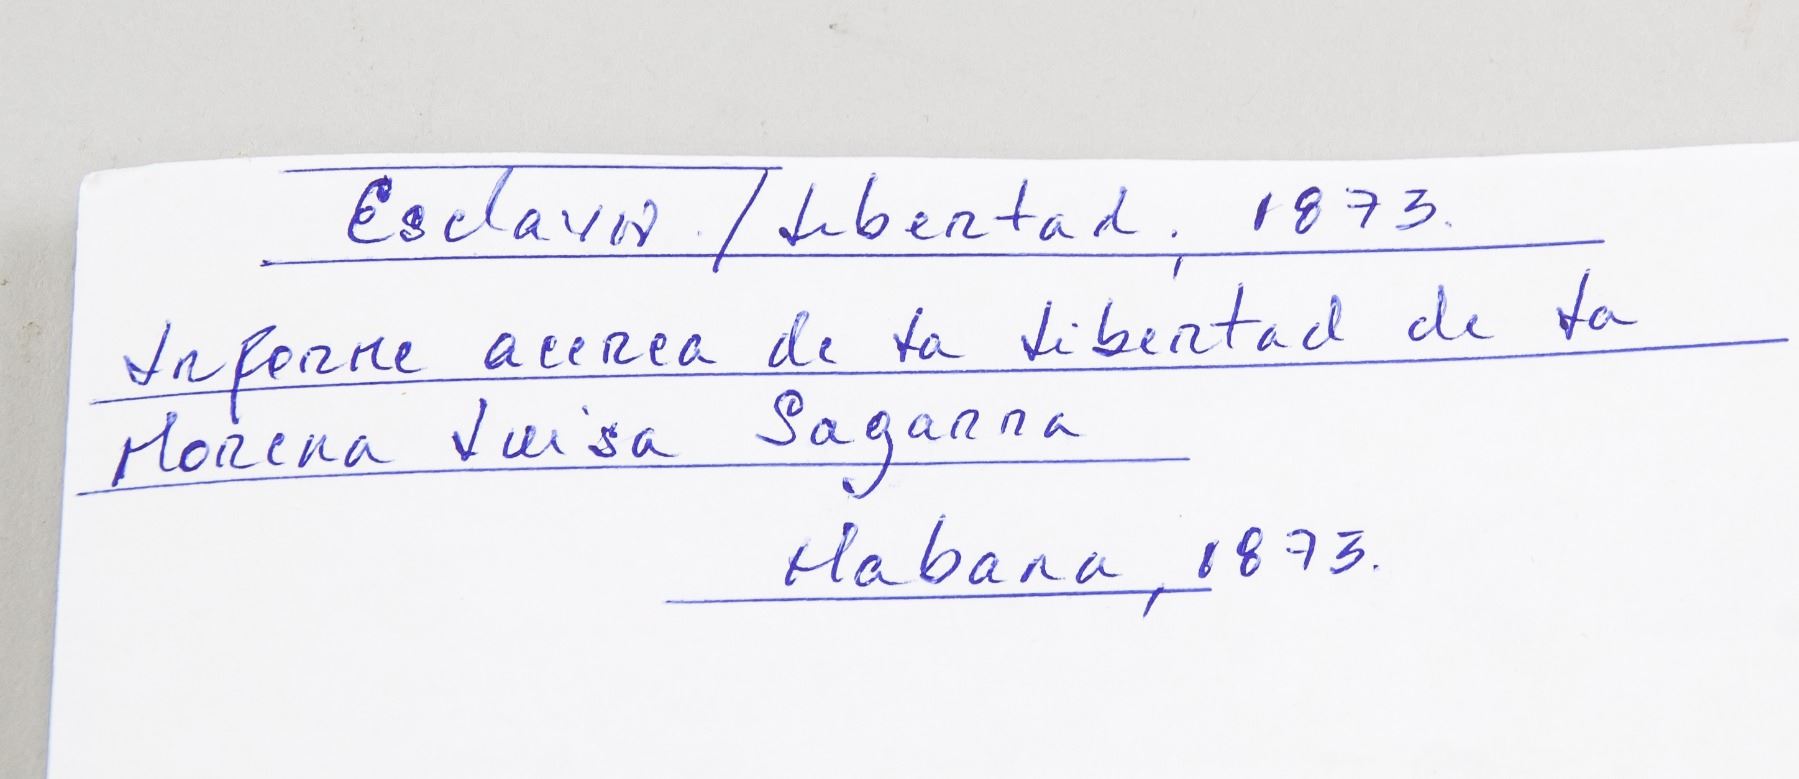 Esclavos./Libertad, 1873.
Informe acerca de la libertad de la
Morena Luisa Sagarra
Habana, 1873.